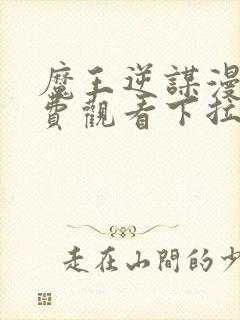 魔王逆謀漫
費觀看下拉
走在山間的少